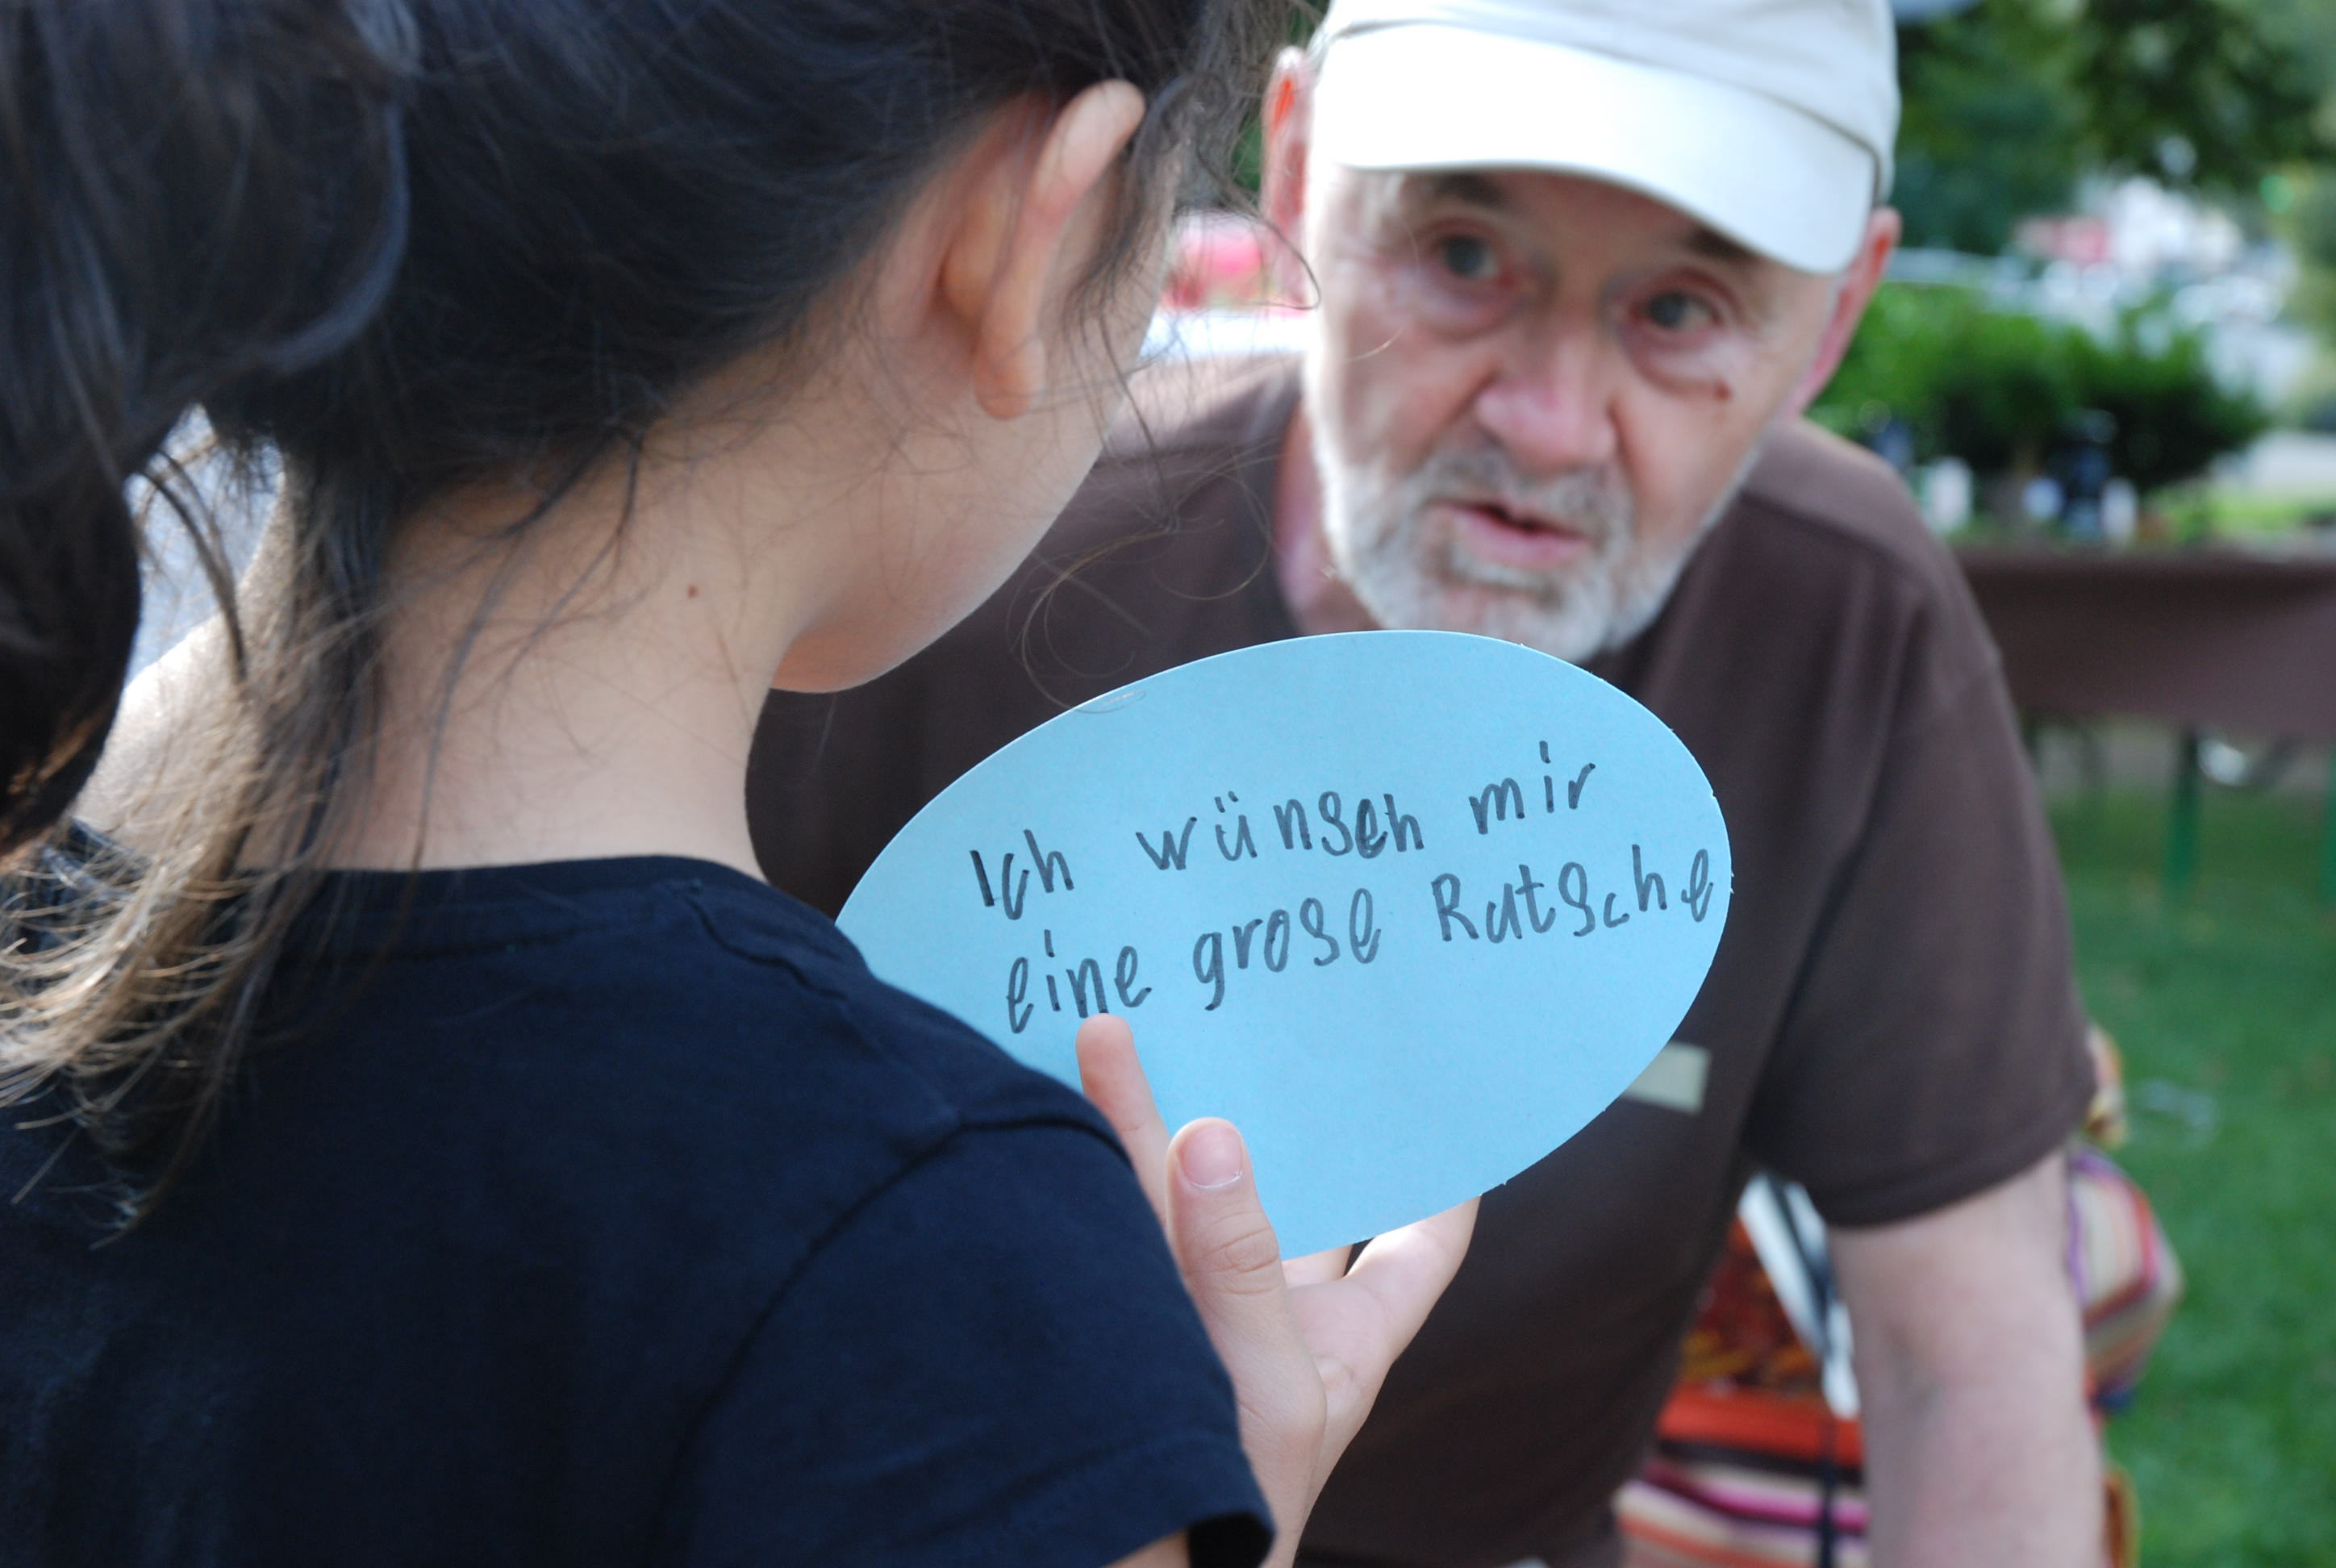 Ich wünsch mir
eine grose Rutsche